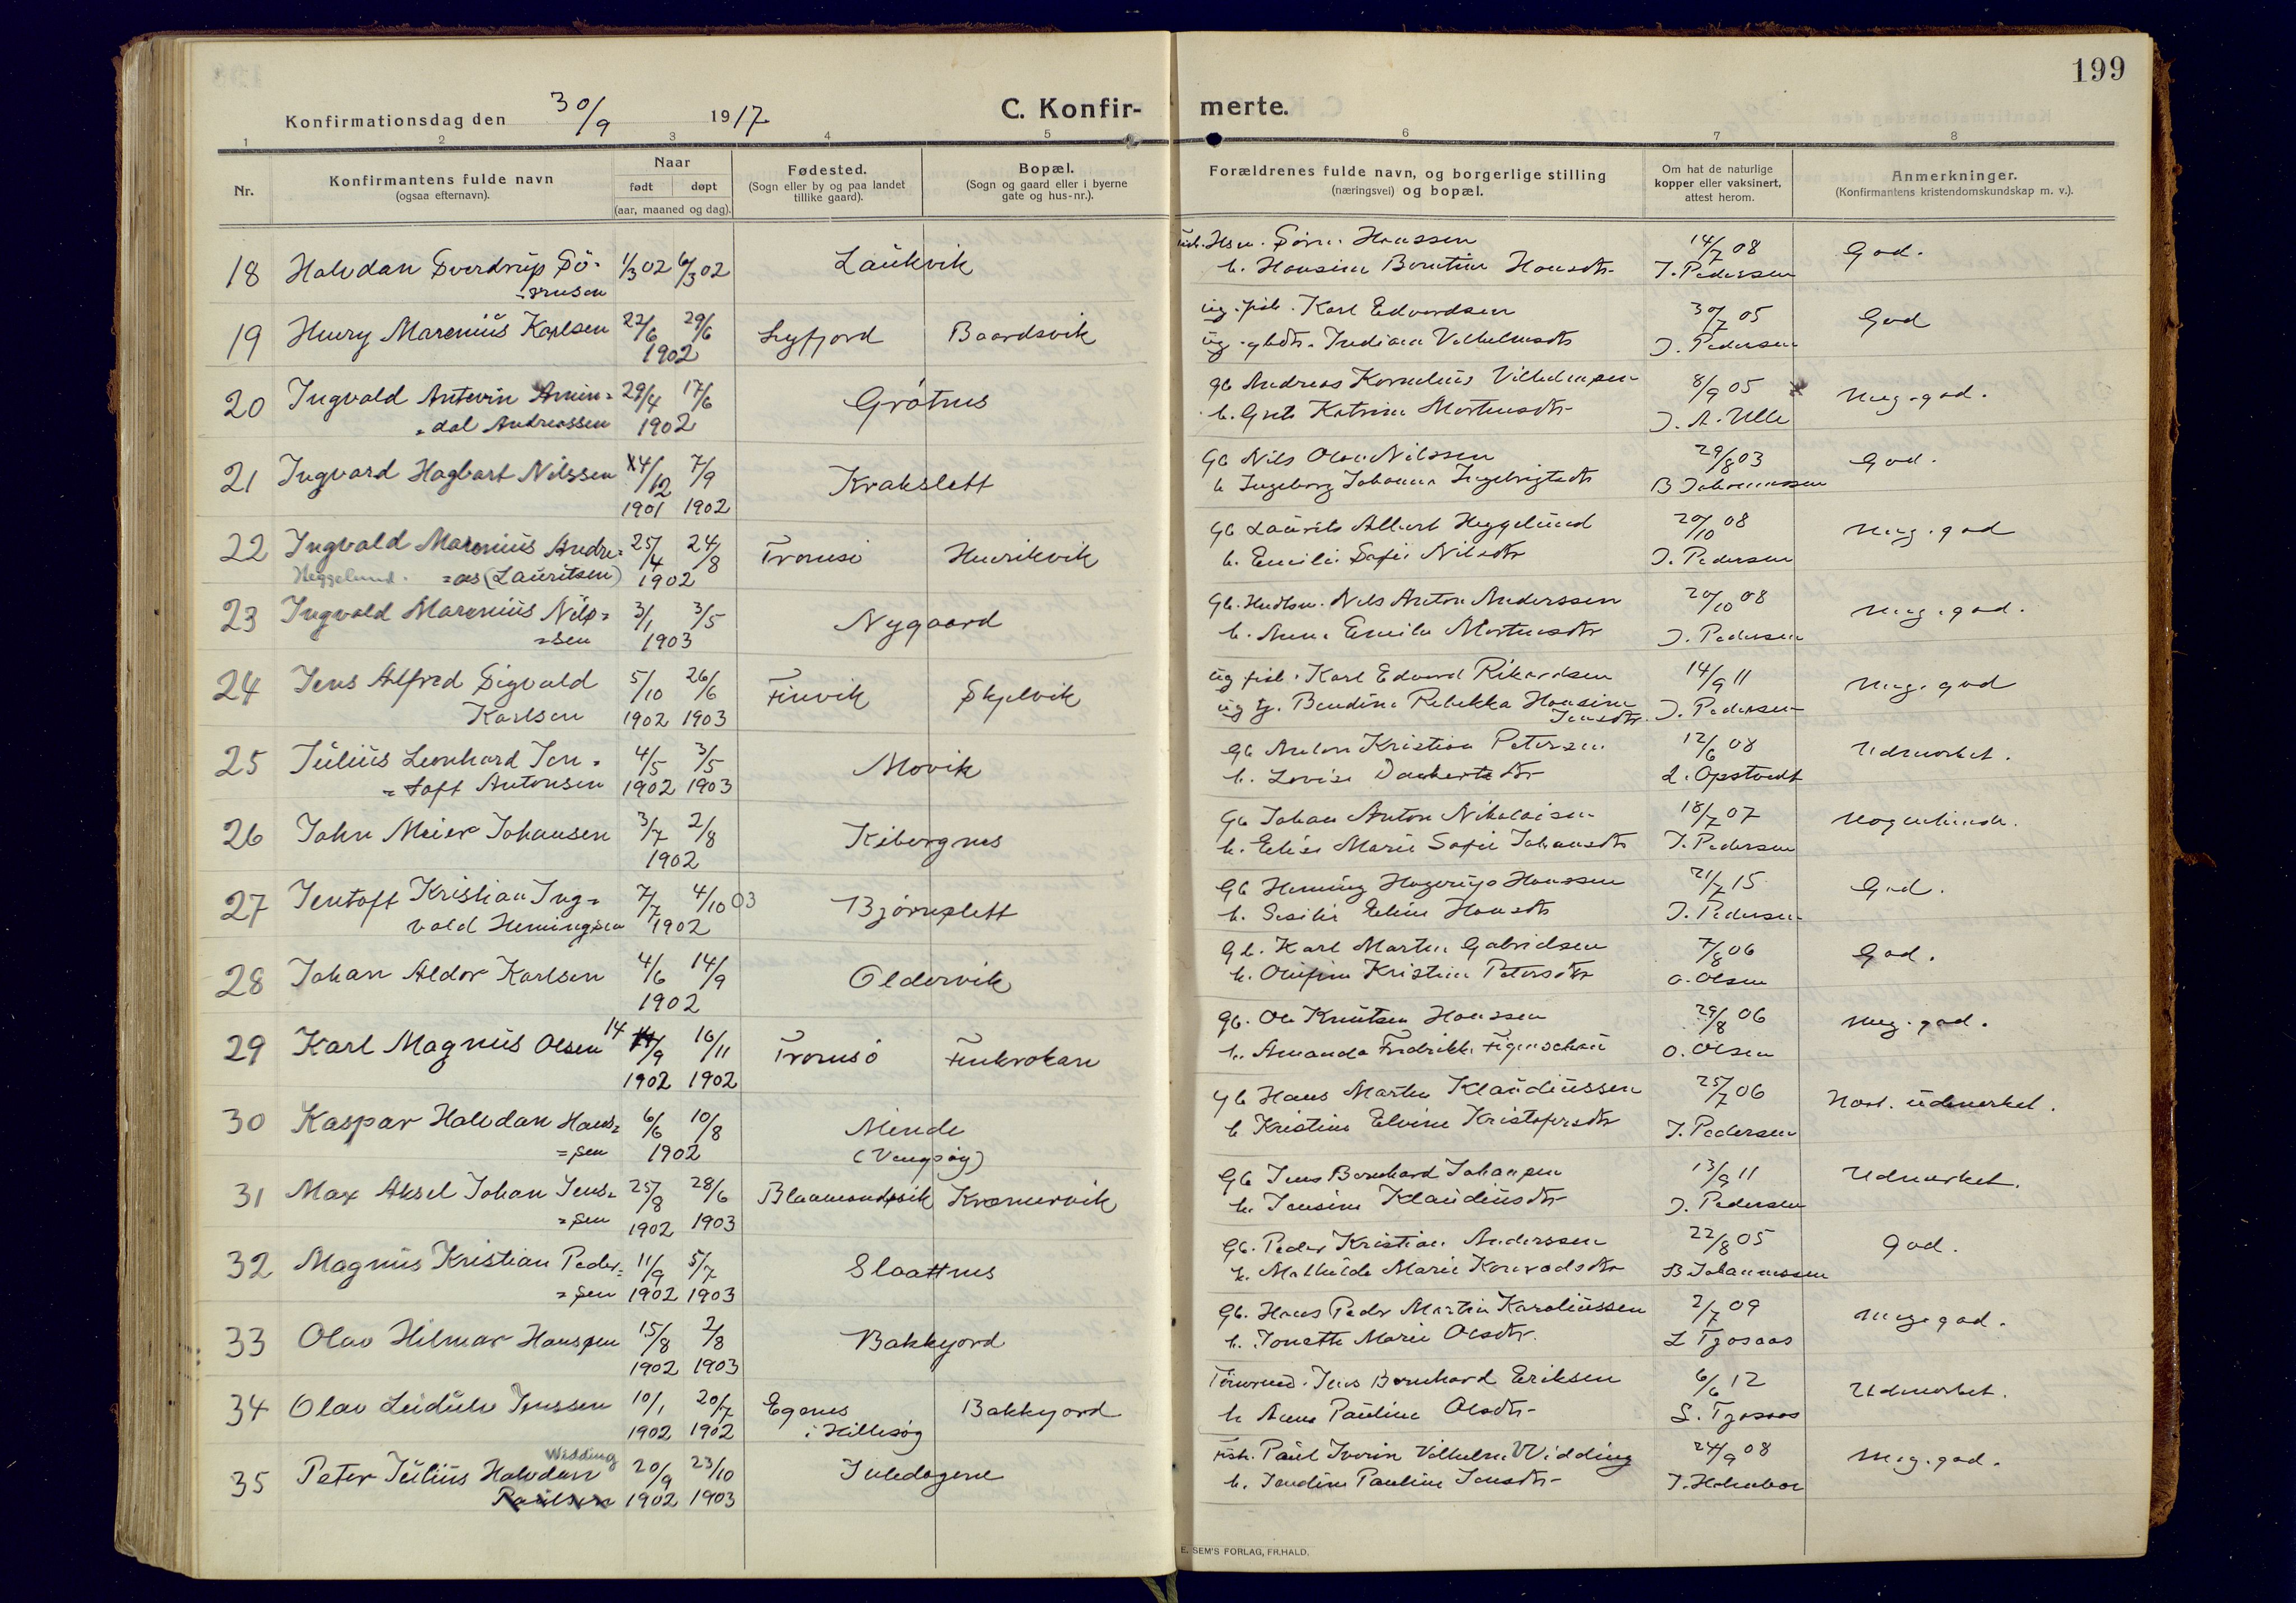 199
Konfirmationsdag den 30/9 1917. C. Konfir- merte.
1 2 3 4 5 6 7 8
Nr.
Konfirmantens fulde navn
(ogsaa efternavn).
Naar
født døpt
(aar, maaned og dag).
Fødested.
(Sogn eller by og paa landet
tillike gaard).
Bopæl.
(Sogn og gaard eller i byerne
gate og hus-nr.).
Forældrenes fulde navn, og borgerlige stilling
(næringsvei) og bopæl.
Om hat de naturlige
kopper eller vaksinert,
attest herom.
Anmerkninger.
(Konfirmantens kristendomskundskap m. v.).
18 Halvdan Sverdrup Sö- 1/3 02 6/3 02 Laukvik Hansen 14/7 08 God.
=rensen h. Hansine Hansdtr. J. Pedersen
19 Henry Marenius Karlsen 22/6 29/6 Baardsvik ug. fisk. Karl Edvardsen 30/7 05 God
1902 ug. gbdtr. Indiana Vilhelmsdtr J. Pedersen
20 Ingvald Antevin Amin= 29/4 17/6 Grötnes gb Andreas Kornelius Vilhelmsen 8/9 05 Meg. god.
=dal Andreassen 1902 h. Katrine Mortensdtr J. A. Ulle
21 Ingvard Hagbart Nilssen 14/12 7/9 Krakslett Gb Nils Nilssen 29/8 03 God.
1901 1902 h Ingeborg Johanna Ingebrigtsdtr B Johannessen
22 Ingvald Marenius Andre= 25/4 24/8 Tromsö Henrikvik Gb Laurits Albert Heggelund 20/10 08 Meg. god
Heggelund. =as (Lauritsen) 1902 h. Emilie Sofie Nilsdtr J. Pedersen
23 Ingvald Marenius Nils= 3/1 3/5 Nygaard Gb. Nils Anton Anderssen 20/10 08 Meg. god.
=sen 1903 h. Anna Emilie Mortensdtr J. Pedersen
24 Jens Alfred Sigvald 5/10 26/6 Finvik Skjelvik ug fisk. Karl Edvard Rikardsen 14/9 11 Meg. god
Karlsen 1902 1903 ug tj. Bendine Rebekka Hansine Jensdtr. J. Pedersen
25 Julius Leonhard Jen= 4/5 3/5 Movik gb Anton Kristian Petersen 12/6 08 Udmerket.
=toft Antonsen 1902 1903 h. Lovise Danbertsdtr L. Opstvedt
26 John Meier Johansen 3/7 2/8 Kibergnes Gb Johan Anton Nikolaisen 18/7 07 Nogenlunde.
1902 h. Elise Marie Sofie Johansdtr J. Pedersen
27 Jentoft Kristian Ing= 7/7 4/10 03 Bjørnslett Gb Heming Hagerup Hanssen 21/7 15 God.
vald Hemingsen 1902 h. Sesilie Eline Hansdtr J. Pedersen
28 Johan Aldor Karlsen 4/6 14/9 Oldervik Gb. Karl Martin Gabrielsen 7/8 06 God.
1902 h. Olufine Kristine Petersdtr O. Olsen
29 Karl Magnus Olsen 14/9 16/11 Tromsö Finkroken gb. Ole Knutsen Hanssen 29/8 06 Meg. god.
1902 1902 h. Amanda Fredrikke Figenschau O. Olsen
30 Kaspar Halvdan Hans= 6/6 10/8 Minde Gb Hans Martin Klaudiussen 25/7 06 Næst. udmerket.
=sen 1902 (Vengsøy) h Kristine Elvine Kristofersdtr J. Pedersen
31 Max Aksel Johan Jens= 25/8 28/6 Blaamandsvik Kræmervik Gb Jens Bernhard Johansen 13/9 11 Udmerket.
=sen 1902 1903 h. Jensine Klaudiusdtr J. Pedersen
32 Magnus Kristian Peder= 11/9 5/7 Slaattnes Gb. Peder Kristian Anderssen 22/8 05 God.
=sen 1902 1903 h. Mathilde Marie Konradsdtr B Johannessen
33 Olav Hilmar Hanssen 15/8 2/8 Bakkejord Gb. Hans Peder Martin Karoliussen 2/7 09 Meg. god.
1902 1903 h. Jonette Marie Olsdtr. L Tjosaas
34 Olav Leidulv Jenssen 10/1 20/7 Egenes Bakkejord Jens Bernhard Eriksen 6/6 12 Udmerket.
1902 1902 i Hillesøy h Anna Pauline Olsdtr L. Tjosaas
Widding
35 Peter Julius Halvdan 20/9 23/10 Juledagene Fisk. Paul Iverin Vilhelm Widding 24/9 08 Meg. god.
Paulsen 1902 1903 h. Jendine Pauline Jensdtr J. Holmboe
E. SEM'S FORLAG, FR.HALD.